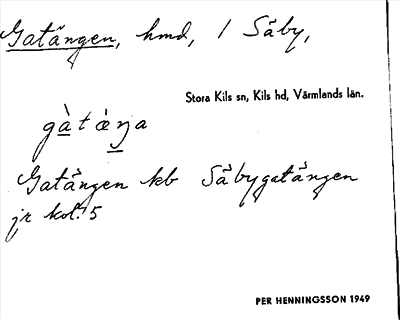 Gatängen, hmd, 1 Säby,
Stora Kils sn, Kils hd, Värmlands län.
gàtáŋa
Gatängen kb Säbygatängen
jr kol. 5
PER HENNINGSSON 1949